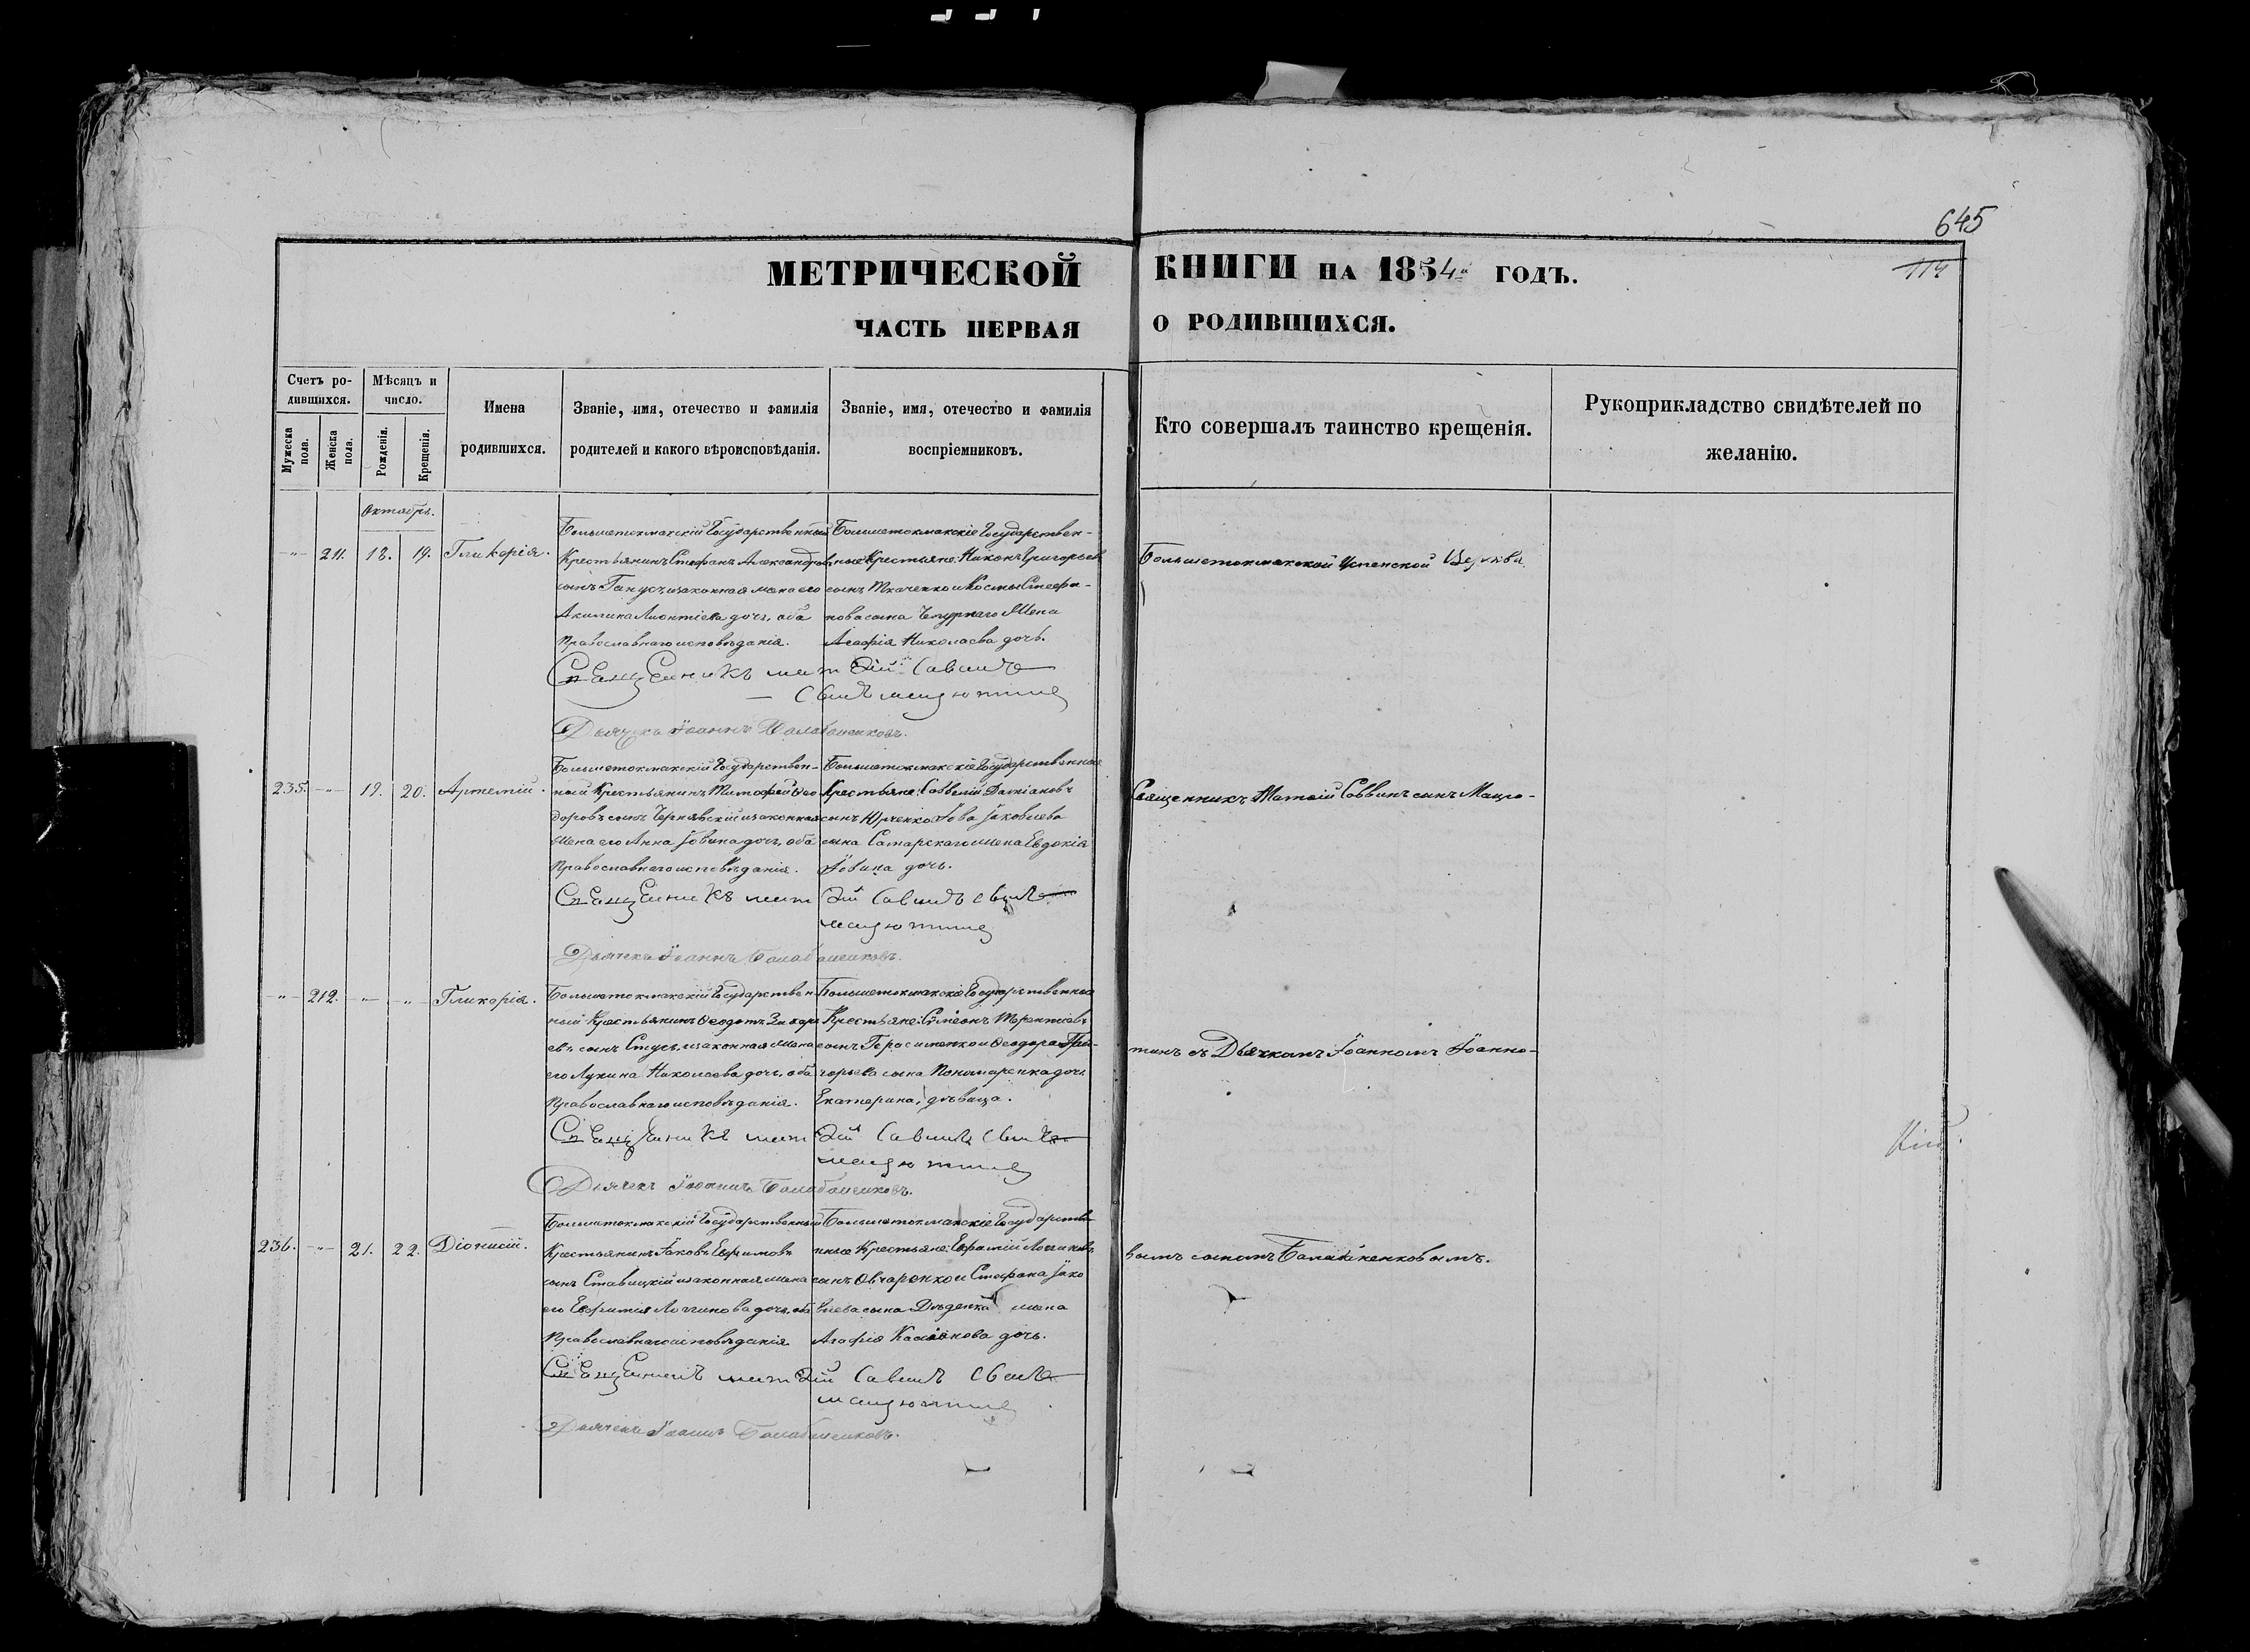 645
МЕТРИЧЕСКОЙ КНИГИ НА 1854й ГОДЪ.
114
ЧАСТЬ ПЕРВАЯ О РОДИВШИХСЯ.
Счетъ ро-
дившихся.
Мужеска пола.
Женска пола.
Мѣсяцъ и
число.
Рожденія.
Крещенія.
Имена
родившихся.
Званіе, имя, отечество и фамилія
родителей и какого вѣроисповѣданія.
Званіе, имя, отечество и фамилія
воспріемниковъ.
Кто совершалъ таинство крещенія.
Рукоприкладство свидѣтелей по
желанію.
Октябрь.
-"- 211. 18. 19. Гликерія.
Большетокмакскій Государственный
Крестьянинъ Стефанъ Александровъ
сынъ Ганусъ, и законная жена его
Акилина Леонтіева дочь, оба
Православнаго исповѣданія.
Большетокмакскіе Государствен-
ные Крестьяне: Никонъ Григорьевъ
сынъ Ткаченко и Космы Стефа-
нова сына жена
Агафія Николаева дочь.
Большетокмакской Успенской Церкви
Священникъ Матѳій Саввинъ
сынъ
Дьячекъ Іоаннъ
235. -"- 19. 20. Артемій.
Большетокмакскій Государствен-
ный Крестьянинъ Тимофей Ѳео
доровъ сынъ Чернявскій и законная
жена его Анна Іовина дочь, оба
Православнаго исповѣданія.
Большетокмакскіе Государственные
Крестьяне: Савелій Даміановъ
сынъ Юрченко и Іова Іаковлева
сына Самарскаго жена Евдокія
Іовина дочь.
Священникъ Матѳій Саввинъ сынъ Мацю-
Священникъ Матѳій Саввинъ сынъ
Дьячекъ Іоаннъ
-"- 212. -"- -"- Гликерія.
Большетокмакскій Государствен-
ный Крестьянинъ Ѳеодотъ Захарі
евъ сынъ Стусь, и законная жена
его Лукина Николаева дочь, оба
Православнаго исповѣданія.
Большетокмакскіе Государственные
Крестьяне: Сѵмеонъ Терентіевъ
сынъ Герасименко и Ѳеодора Гри-
горьева сына Пономаренка дочь
Екатерина, дѣвица.
тинъ съ Дьячкомъ Іоанномъ Іоанно-
Священникъ Матѳій Саввинъ сынъ
Дьячекъ Іоаннъ
236. -"- 21. 22. Діонисій.
Большетокмакскій Государственный
Крестьянинъ Іаковъ Ефимовъ
сынъ Ставицкій и законная жена
его Евфимія Логгинова дочь, оба
Православнаго исповѣданія
Большетокмакскіе Государстве
нные Крестьяне: Евфимій Логиновъ
сынъ Овчаренко и Стефана Іако
влева сына Дѣденка жена
Агафія Касіянова дочь.
вымъ сыномъ
Священникъ Матѳій Саввинъ сынъ
Дьячекъ Іоаннъ